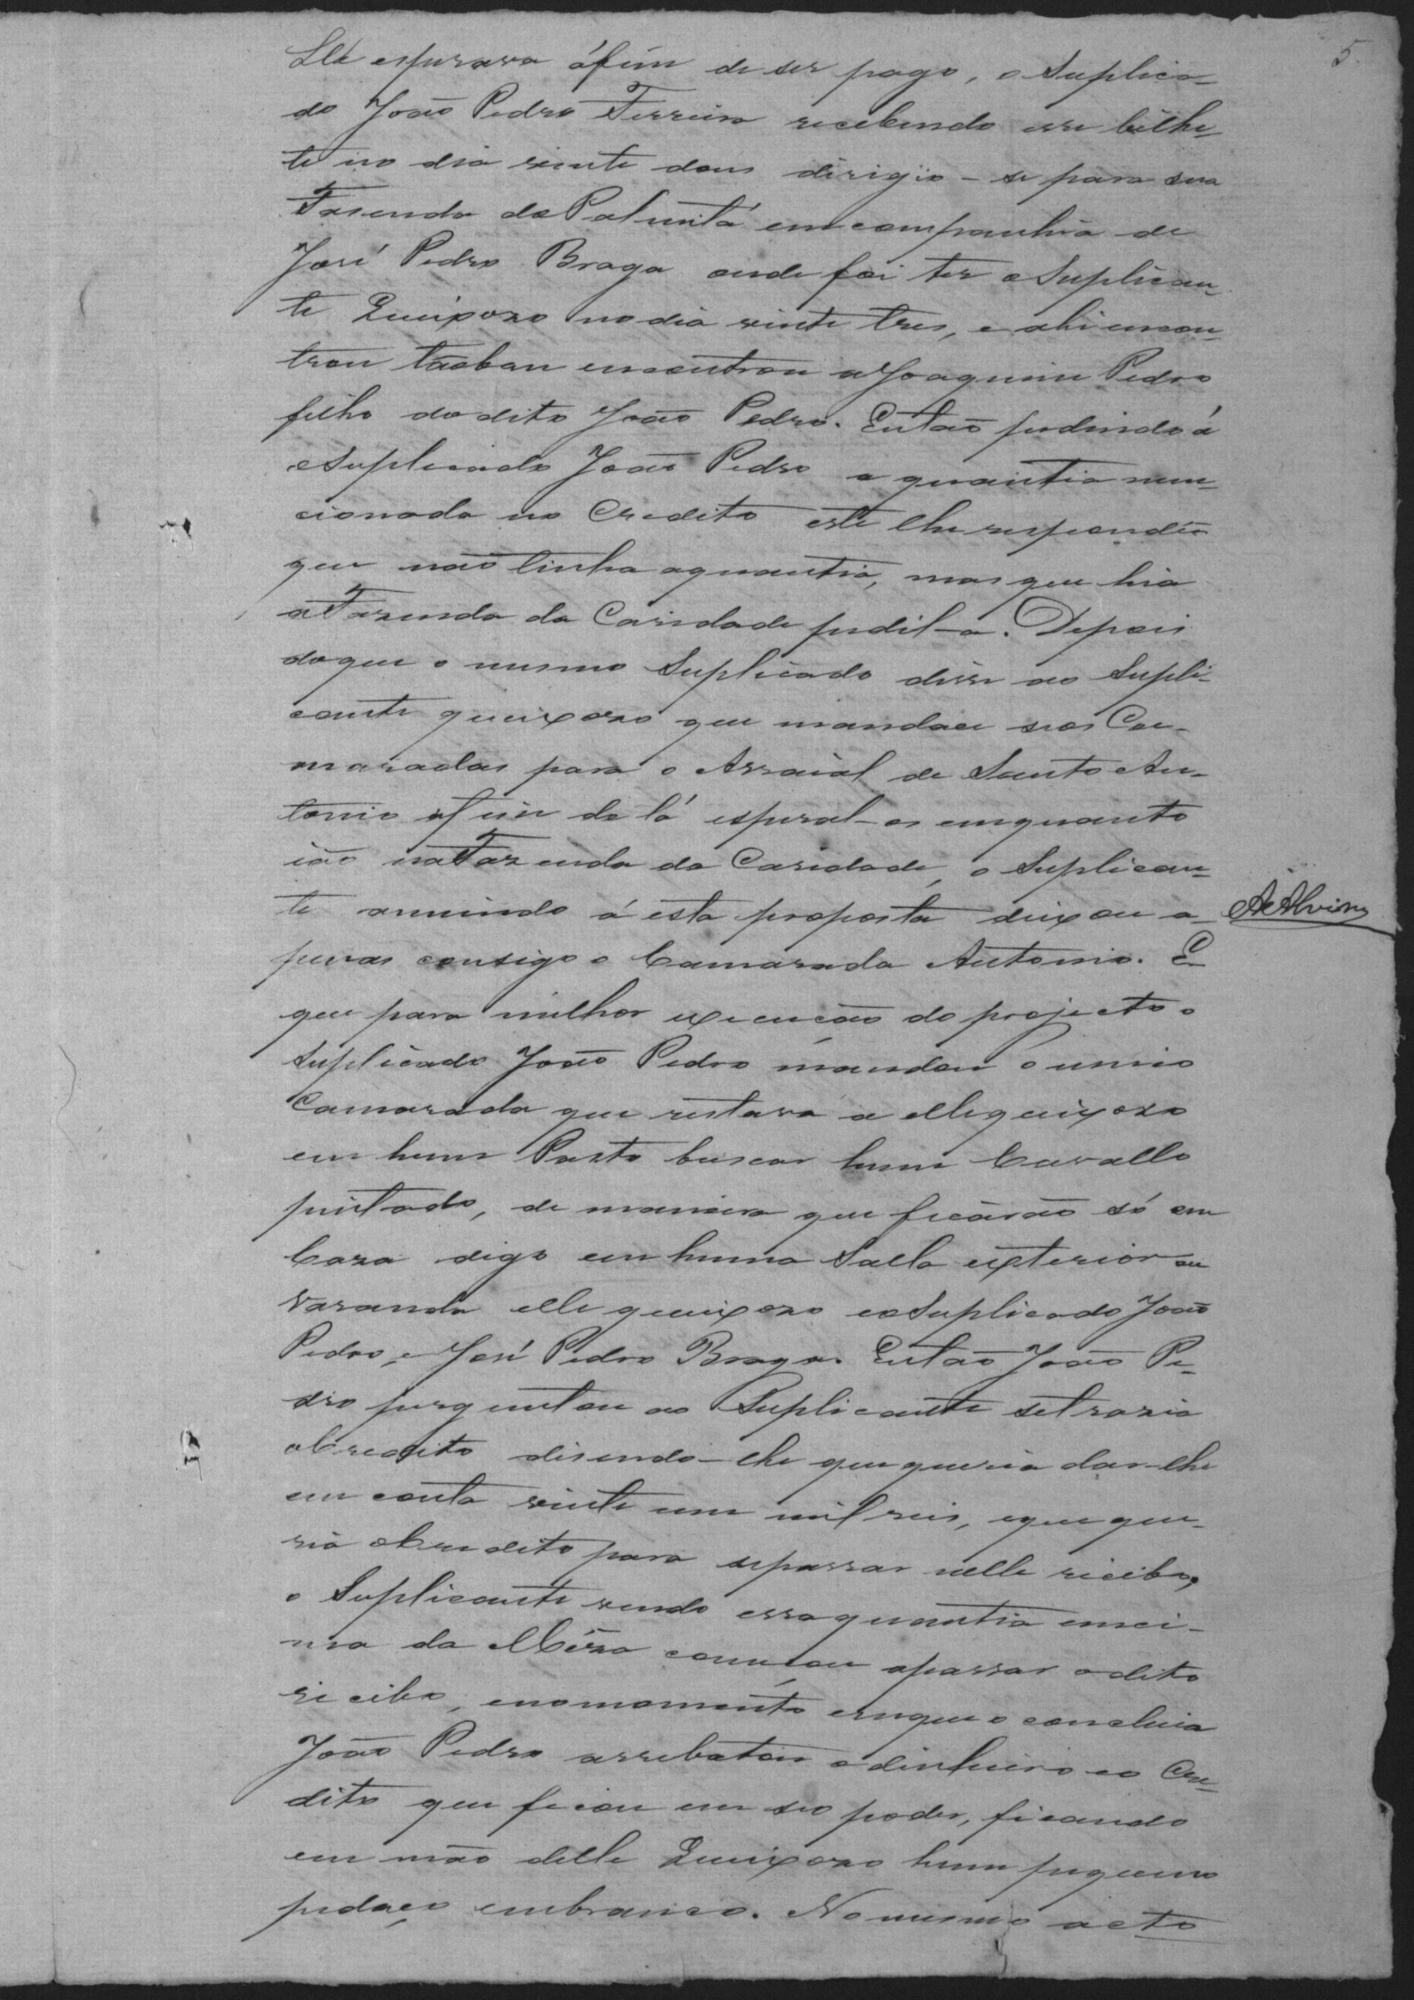 5.
Lhe esperava áfim de ser pago, o Suplica-
do João Pedro Ferreira recebendo esse bilhe-
te no dia vinte dous dirigio-se para sua
Fasenda de em companhia de
José Pedro Braga onde foi ter o Suplican-
te Queixozo no dia vinte tres, e ahi encon-
trou encontrou a Joaquim Pedro
filho do dito João Pedro. Então pedindo á
o Suplicado João Pedro a quantia men-
cionada no Credito este lhe respondeo
que não tinha a quantia, mas que hia
a Fazenda da Caridade pedil-a. Depois
do que o mesmo Suplicado disse ao Supli-
cante queixozo que mandace seos Ca-
maradas para o Arraial de Santo An-
tonio afim de lá esperal-os emquanto
ião na Fazenda da Caridade, o Suplican-
te annuindo á esta proposta deixou a-
penas consigo o Camarada Antonio. E
A e Alvim
que para milhor execução do projecto o
Suplicado João Pedro mandou o unico
Camarada que restava a elle queixozo
em hum Pasto buscar hum Cavallo
pintado, de maneira que ficárão só em
Caza digo em huma Salla exterior ou
Varanda elle queixozo eo Suplicado João
Pedro, e José Pedro Braga. Então João Pe-
dro perguntou ao Suplicante se trazia
o Credito disendo-lhe que queria dar-lhe
em conta vinte um mil reis, e que que-
ria o Credito para se passar nelle recibo,
o Suplicante vendo essa quantia emci-
ma da Mêza começou a passar o dito
recibo, e no momento em que o concluia
João Pedro arrebatou o dinheiro eo Cre-
dito que ficou em seo poder, ficando
em mão delle Queixozo hum pequeno
pedaço em branco. No mesmo acto